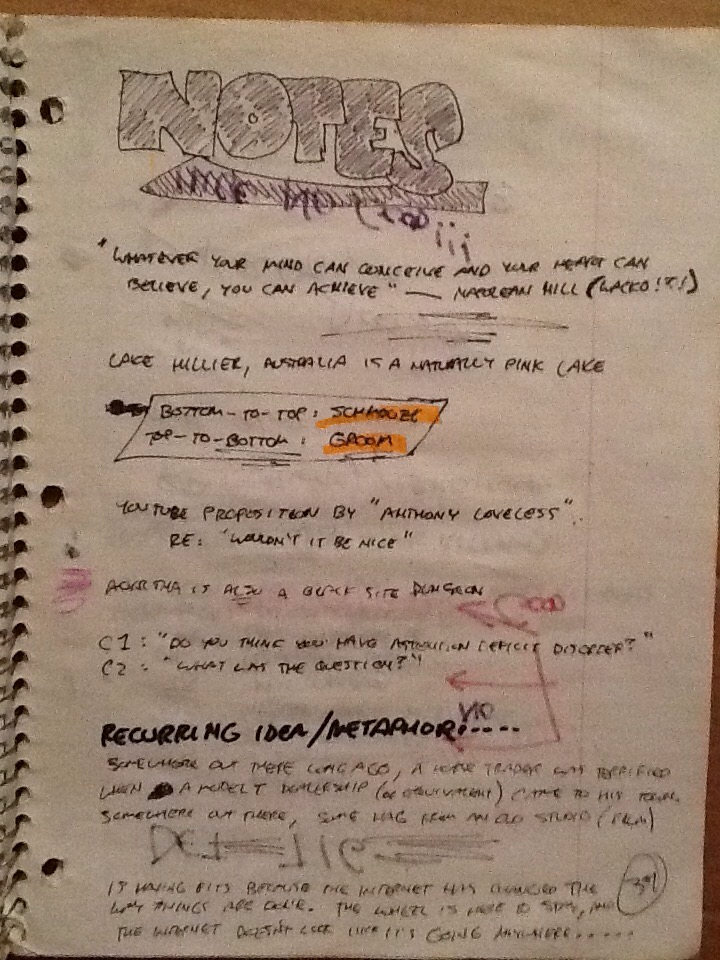 NOTES
"WHATEVER YOUR MIND CAN CONCEIVE AND YOUR HEART CAN
BELIEVE, YOU CAN ACHIEVE" — NAPOLEAN HILL (WACKO!?!)
LAKE HILLIER, AUSTRALIA IS A NATURALLY PINK LAKE
BOTTOM-TO-TOP: SCHMOOZE
TOP-TO-BOTTOM: GROOM
YOUTUBE PROPOSITION BY "ANTHONY LOVELESS".
RE: "WOULDN'T IT BE NICE"
AGARTHA IS ALSO A BLACK SITE DUNGEON
C1: "DO YOU THINK YOU HAVE ATTENTION DEFICIT DISORDER?"
C2: "WHAT WAS THE QUESTION?"
RECURRING IDEA/METAPHOR:....
SOMEWHERE OUT THERE LONG AGO, A HORSE TRADER WAS TERRIFIED
WHEN A MODEL T DEALERSHIP (OR EQUIVALENT) CAME TO HIS TOWN.
SOMEWHERE OUT THERE, SOME HAG FROM AN OLD STUDIO (FILM)
IS HAVING FITS BECAUSE THE INTERNET HAS CHANGED THE
WAY THINGS ARE DONE. THE WHEEL IS HERE TO STAY, AND
THE INTERNET DOESN'T LOOK LIKE IT'S GOING ANYWHERE.....
39